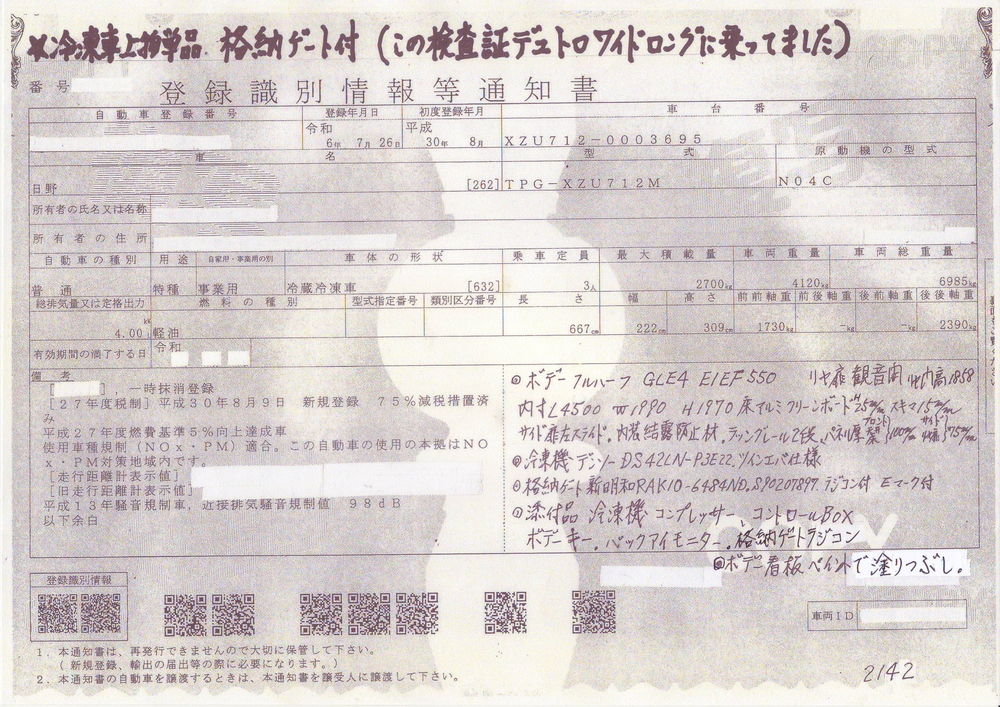 冷凍車上物単品 格納ゲート付 (この検査証デュトロワイドロングに乗ってました)
番号 登録識別情報等通知書
自動車登録番号 登録年月日 初度登録年月 車台番号
令和 6年 7月 26日 平成 30年 8月 XZU712-0003695
車名 型式 原動機の型式
日野 [262] TPG-XZU712M N04C
所有者の氏名又は名称
所有者の住所
自動車の種別 用途 自家用・事業用の別 車体の形状 乗車定員 最大積載量 車両重量 車両総重量
普通 特種 事業用 冷蔵冷凍車 [632] 3人 2700kg 4120kg 6985kg
総排気量又は定格出力 燃料の種別 型式指定番号 類別区分番号 長さ 幅 高さ 前前軸重 前後軸重 後前軸重 後後軸重
4.00 kW 軽油 667cm 222cm 309cm 1730kg -kg -kg 2390kg
有効期間の満了する日 令和
備考
[ ], 一時抹消登録
[27年度税制] 平成30年8月9日 新規登録 75%減税措置済
み
平成27年度燃費基準5%向上達成車
使用車種規制(NOx・PM)適合。この自動車の使用の本拠はNO
x・PM対策地域内です。
[走行距離計表示値]
[旧走行距離計表示値]
平成13年騒音規制車，近接排気騒音規制値 98dB
以下余白
◎ボデー フルハーフ GLE4 E1EF550 リヤ扉 観音開 地内高1858
内寸L4500 W1990 H1970 床アルミクリーンボード25m/m スキマ15m/m
サイド扉左スライド. 内装結露防止材. ラッシングレール2段. パネル厚 フロント100m/m サイド 75m/m
◎冷凍機 デンソー DS42LN-P3E22, ツインエバ仕様
◎格納ゲート 新明和RAK10-6484ND, S90207897 ラジコン付 Eマーク付
◎添付品 冷凍機 コンプレッサー コントロールBOX
ボデーキー. バックアイモニター. 格納ゲートラジコン
◎ボデー看板ペイントで塗りつぶし。
登録識別情報
車両ID
1．本通知書は、再発行できませんので大切に保管して下さい。
(新規登録、輸出の届出等の際に必要になります。)
2．本通知書の自動車を譲渡するときは、本通知書を譲受人に譲渡して下さい。
2142